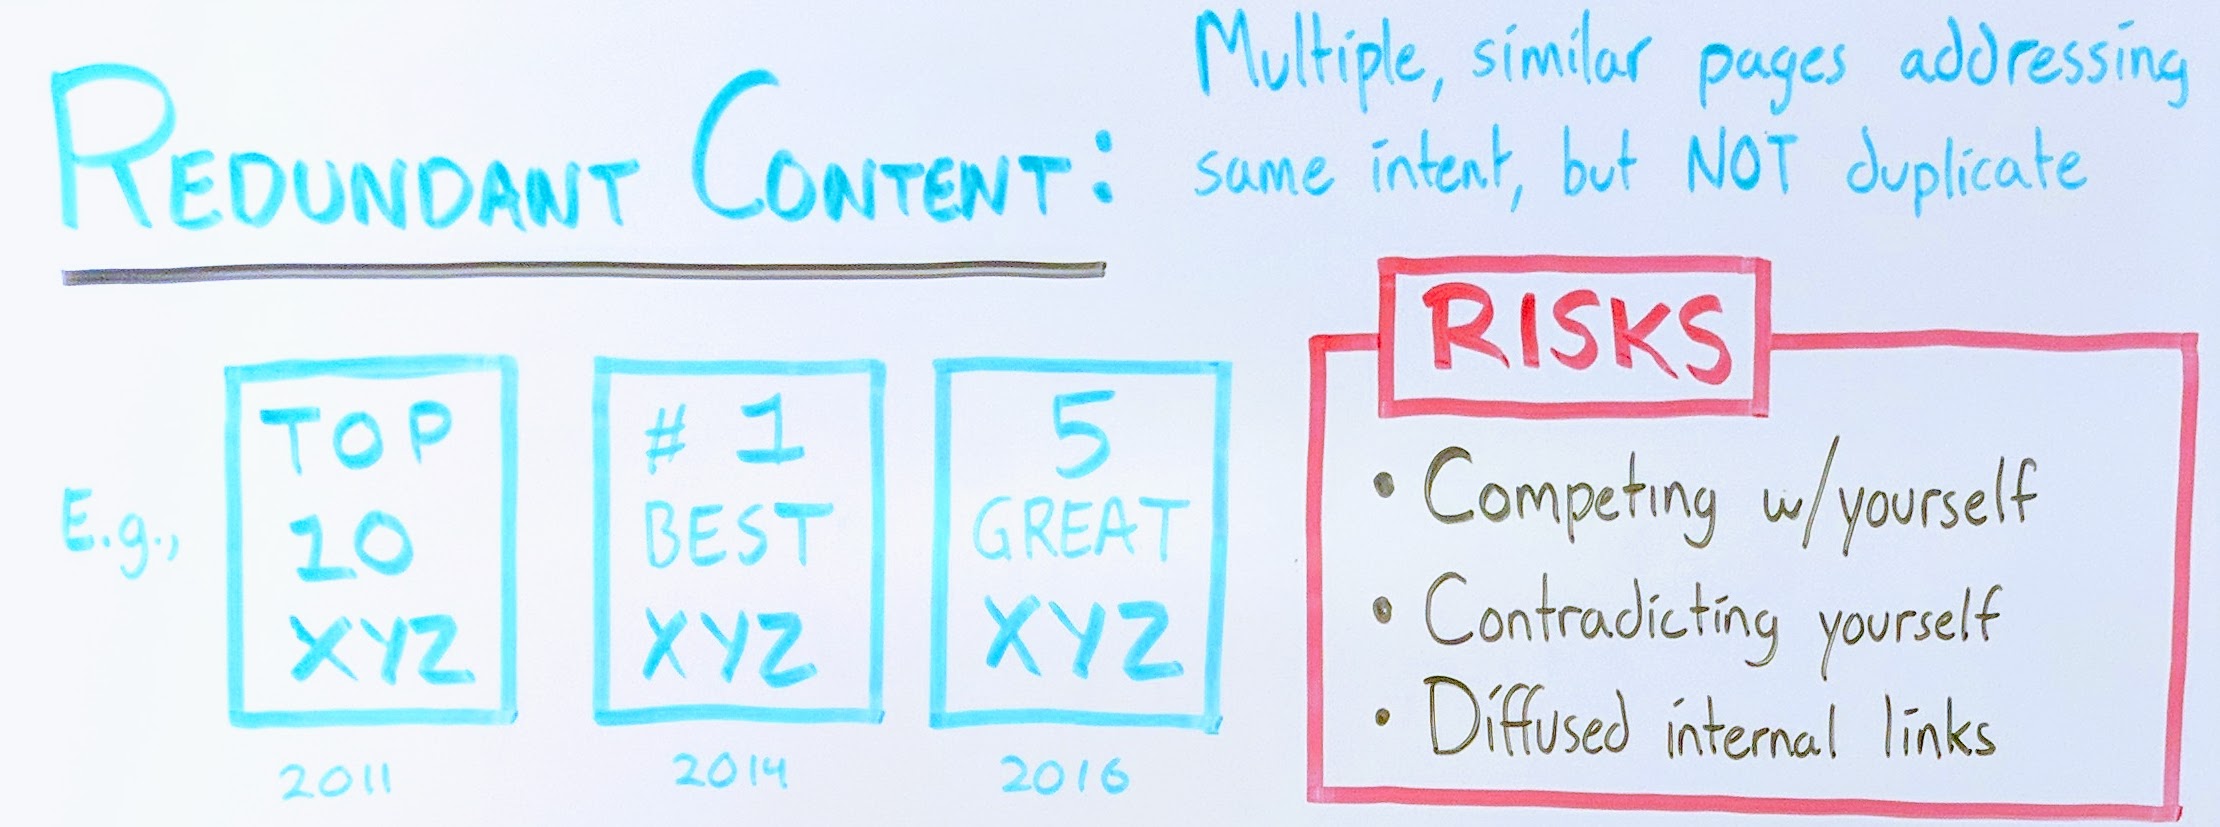 REDUNDANT CONTENT:
Multiple, similar pages addressing
same intent, but NOT duplicate
E.g.,
TOP
10
XYZ
2011
# 1
BEST
XYZ
2014
5
GREAT
XYZ
2016
RISKS
• Competing w/yourself
• Contradicting yourself
• Diffused internal links